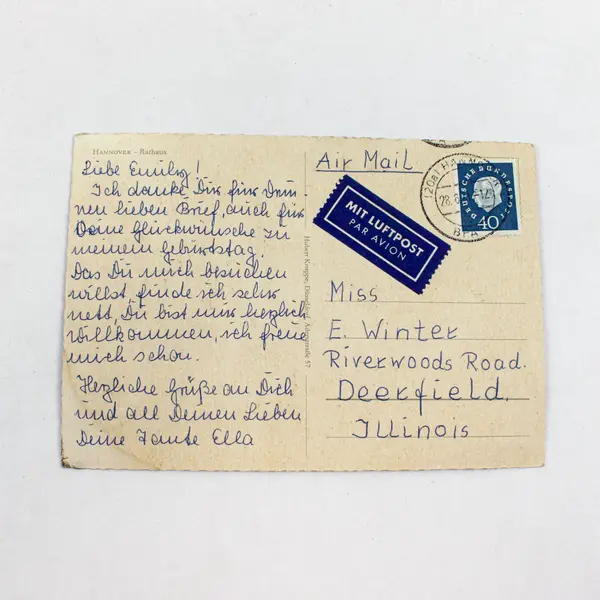 HANNOVER – Rathaus
Liebe Emily!
Ich danke Dir für Dein-
nen lieben Brief, auch für
Deine Glückwünsche zu
meinem Geburtstag!
Das Du mich besuchen
willst, finde ich sehr
nett, Du bist mir herzlich
willkommen, ich freue
mich schon.
Herzliche Grüße an Dich
und all Deinen Lieben
Deine Tante Ella
Düsseldorf
57
Air Mail
MIT LUFTPOST
PAR AVION
(20a) HANNOVER
28.
BPA
DEUTSCHE BUNDESPOST
40
Miss
E. Winter
Riverwoods Road.
Deerfield.
Illinois